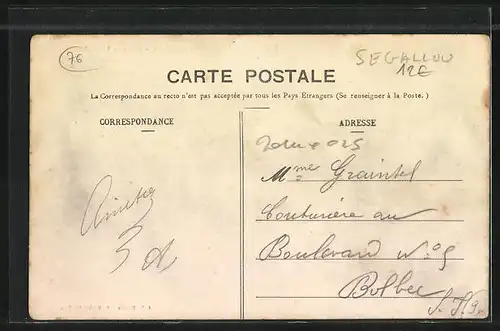 76
SEGALLOU
12€
CARTE POSTALE
La Correspondance au recto n'est pas acceptée par tous les Pays Etrangers (Se renseigner à la Poste.)
CORRESPONDANCE
ADRESSE
Mme Graintel
Couturière au
Boulevard N° 5
Bolbec
S. I.